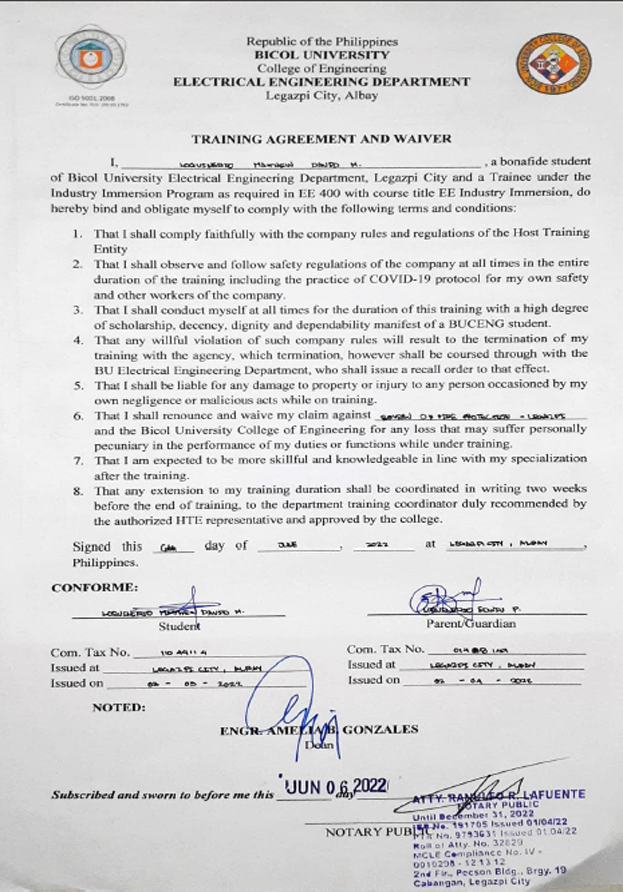 Republic of the Philippines
BICOL UNIVERSITY
College of Engineering
ELECTRICAL ENGINEERING DEPARTMENT
Legazpi City, Albay
ISO 9001:2008
TRAINING AGREEMENT AND WAIVER
I, MATTHEW DAVID M. , a bonafide student
of Bicol University Electrical Engineering Department, Legazpi City and a Trainee under the
Industry Immersion Program as required in EE 400 with course title EE Industry Immersion, do
hereby bind and obligate myself to comply with the following terms and conditions:
1. That I shall comply faithfully with the company rules and regulations of the Host Training
Entity
2. That I shall observe and follow safety regulations of the company at all times in the entire
duration of the training including the practice of COVID-19 protocol for my own safety
and other workers of the company.
3. That I shall conduct myself at all times for the duration of this training with a high degree
of scholarship, decency, dignity and dependability manifest of a BUCENG student.
4. That any willful violation of such company rules will result to the termination of my
training with the agency, which termination, however shall be coursed through with the
BU Electrical Engineering Department, who shall issue a recall order to that effect.
5. That I shall be liable for any damage to property or injury to any person occasioned by my
own negligence or malicious acts while on training.
6. That I shall renounce and waive my claim against BUREAU OF FIRE PROTECTION - LEGAZPI
and the Bicol University College of Engineering for any loss that may suffer personally
pecuniary in the performance of my duties or functions while under training.
7. That I am expected to be more skillful and knowledgeable in line with my specialization
after the training.
8. That any extension to my training duration shall be coordinated in writing two weeks
before the end of training, to the department training coordinator duly recommended by
the authorized HTE representative and approved by the college.
Signed this 6th day of JUNE , 2022 at LEGAZPI CITY , ALBAY ,
Philippines.
CONFORME:
MATTHEW DAVID M.
Student
P.
Parent/Guardian
Com. Tax No.
Issued at LEGAZPI CITY , ALBAY
Issued on 02 - 03 - 2022
Com. Tax No.
Issued at LEGAZPI CITY , ALBAY
Issued on 02 - 04 - 2022
NOTED:
ENGR. AMELIA B. GONZALES
Dean
Subscribed and sworn to before me this JUN 06 2022 day
NOTARY PUBLIC
ATTY. R. LAFUENTE
NOTARY PUBLIC
Until December 31, 2022
No. 191705 Issued 01/04/22
PTR No. 9793631 Issued 01.04/22
Roll of Atty. No. 32829
MCLE Compliance No. IV -
2nd Flr., Pecson Bldg., Brgy. 19
Cabangan, Legazpi City